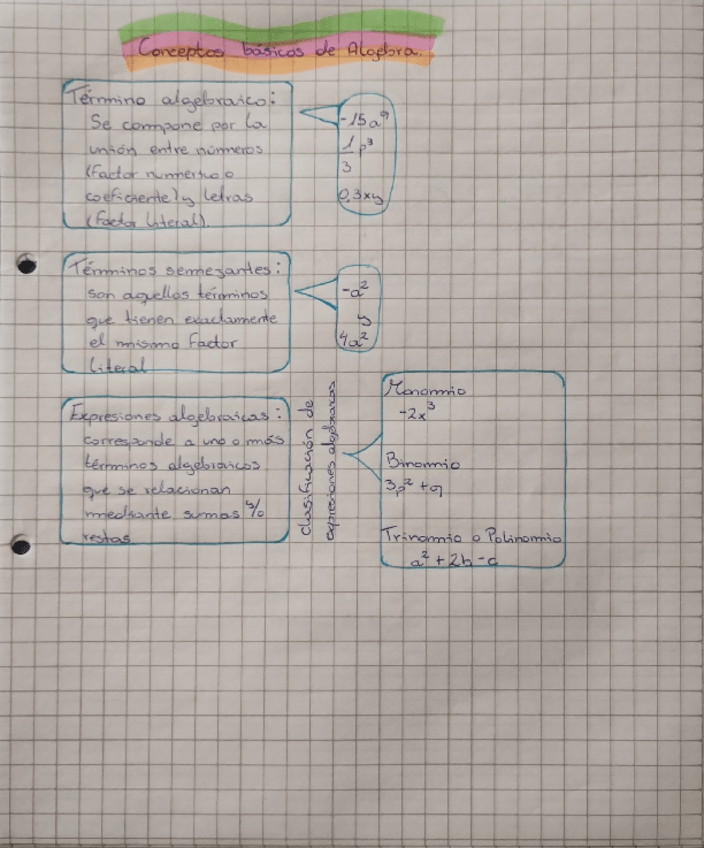 Conceptos básicos de Algebra.
Término algebraico:
Se compone por la
unión entre números
(factor numérico o
coeficiente) y letras
(factor literal).
-15a⁹
1/3 p³
0,3xy
Términos semezantes:
son aquellos términos
que tienen exactamente
el mismo factor
literal
-a²
y
4a²
Expresiones algebraicas:
corresponde a uno o más
términos algebraicos
que se relacionan
mediante sumas y/o
restas
clasificación de
expresiones algebraicas
Monomio
-2x³
Binomio
3p² + q
Trinomio o Polinomio
a² + 2b - c